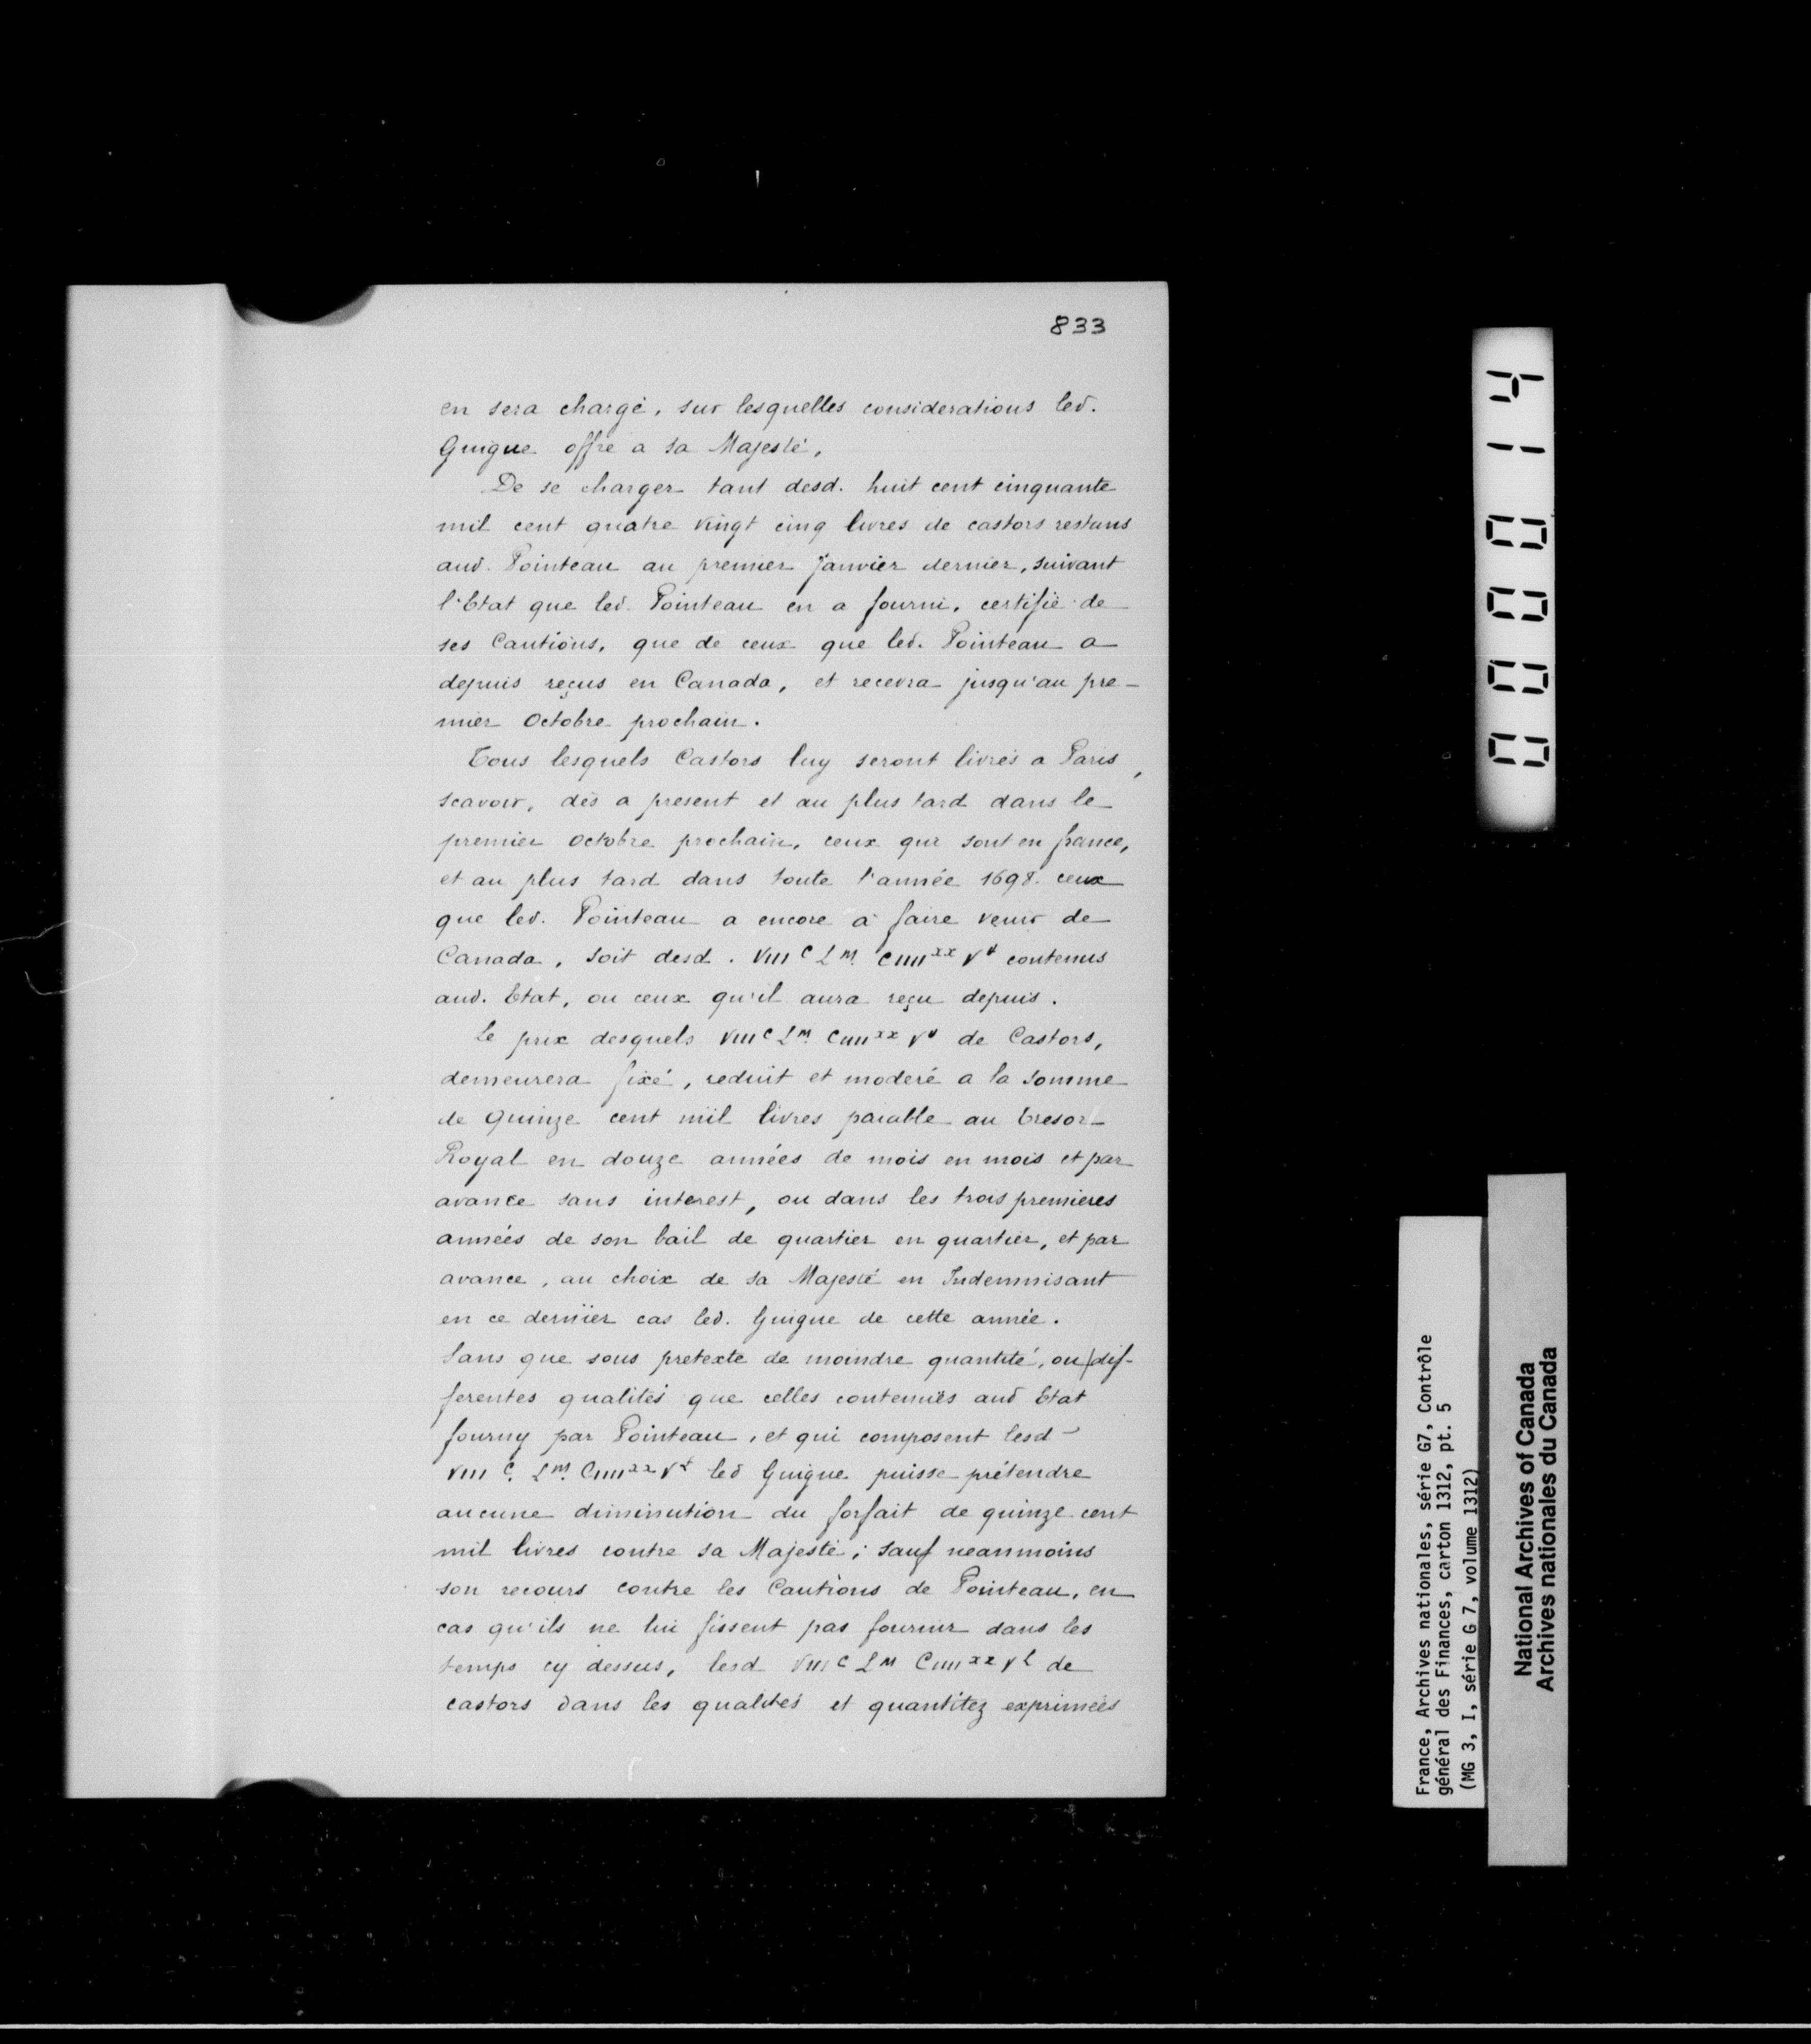 833
en sera chargé, sur lesquelles considerations led.
Guigue offre a sa Majesté,
De se charger tant desd. huit cent cinquante
mil cent quatre vingt cinq livres de castors restans
aud. Pointeau au premier janvier dernier, suivant
l'Etat que led. Pointeau en a fourni, certifié de
ses Cautions, que de ceux que led. Pointeau a
depuis reçus en Canada, et recevra jusqu'au pre-
mier Octobre prochain.
Tous lesquels Castors luy seront livrés a Paris,
scavoir, dès a present et au plus tard dans le
premier octobre prochain, ceux qui sont en france,
et au plus tard dans toute l'année 1698. ceux
que led. Pointeau a encore à faire venir de
Canada, soit desd. VIII C L M. CIIII xx V # contenus
aud. Etat, ou ceux qu'il aura reçu depuis.
Le prix desquels VIII C L M. CIIII xx V # de Castors,
demeurera fixé, reduit et moderé a la somme
de Quinze cent mil livres paiable au tresor
Royal en douze années de mois en mois et par
avance sans interest, ou dans les trois premieres
années de son bail de quartier en quartier, et par
avance, au choix de sa Majesté en Indemnisant
en ce dernier cas led. Guigue de cette année.
Sans que sous pretexte de moindre quantité, ou dif-
ferentes qualités que celles contenuës aud Etat
fourny par Pointeau, et qui composent lesd
VIII C. L M. CIIII xx V # led Guigue puisse prétendre
aucune diminution du forfait de quinze cent
mil livres contre sa Majesté; sauf neanmoins
son recours contre les Cautions de Pointeau, en
cas qu'ils ne lui fissent pas fournir dans les
temps cy dessus, lesd VIII C L M CIIII xx V L de
castors dans les qualités et quantitez exprimées
000114
France, Archives nationales, série G7, Contrôle
général des Finances, carton 1312, pt. 5
(MG 3, I, série G 7, volume 1312)
National Archives of Canada
Archives nationales du Canada